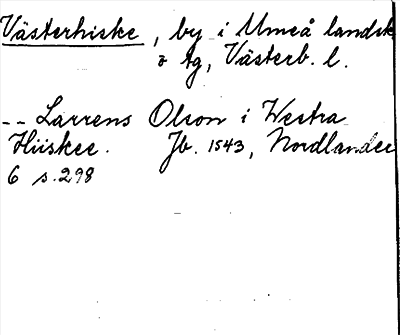 Västerhiske, by i Umeå landsk
& tg, Västerb. l.
-- Larrens Olson i Westra
Hiiskee. Jb. 1543, Nordlander
6 s. 298